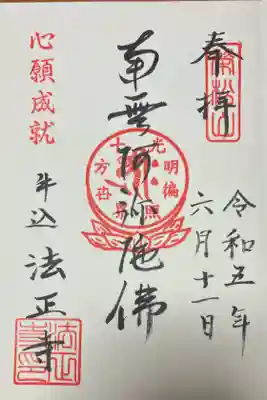 奉拝
令和五年
六月十一日
南無阿弥陀佛
光明徧照
十方世界
心願成就
牛込 法正寺